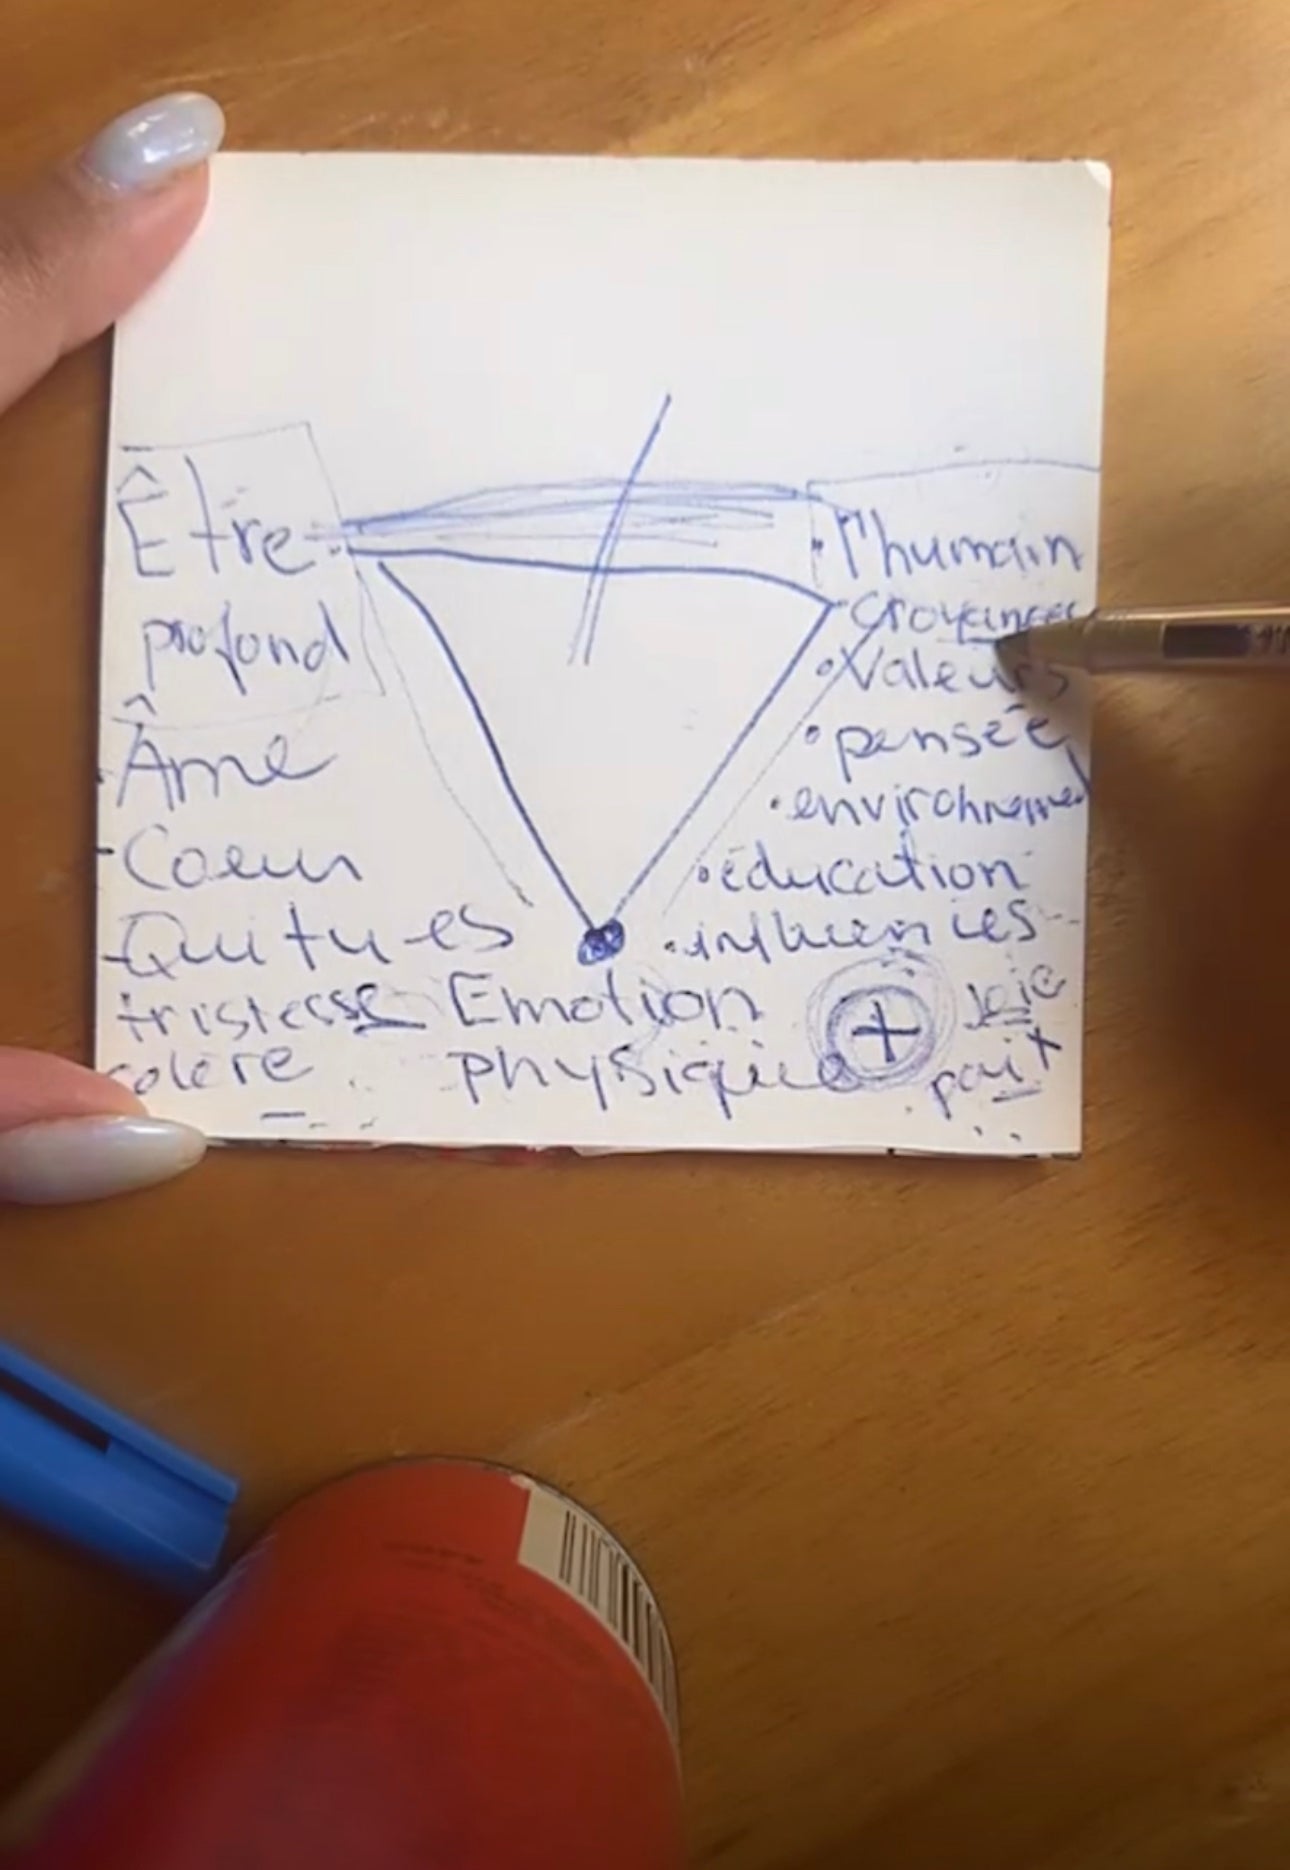 Être
profond
Âme
- Coeur
- Qui tu es
tristesse
colère
Emotion
physique
+
• l'humain
croyances
• Valeurs
• pensée
• environnement
• éducation
• influences
Joie
paix